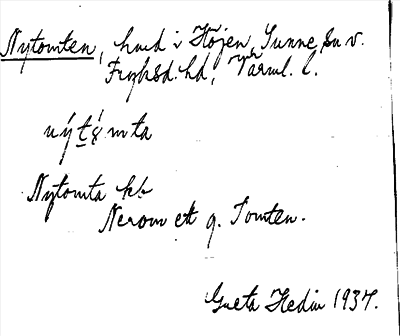 Nytomten, hmd i Höjen, Sunne sn v.
Fryksd. hd, Värml. l.
Nytomta kb
Nerom ett g. Tomten.
Greta Hedin 1937.